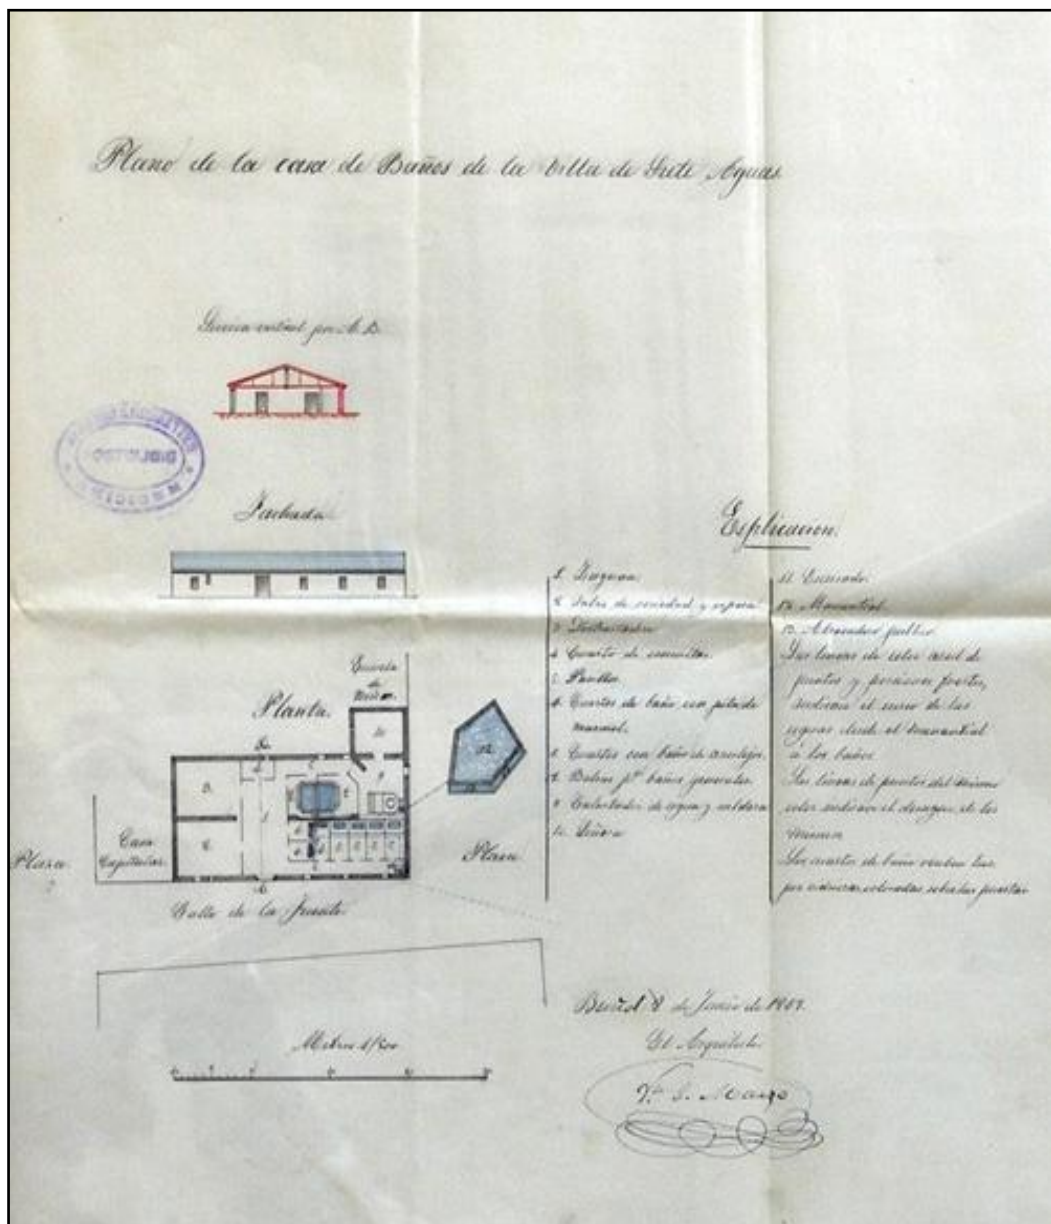 Plano de la casa de Baños de la Villa de Siete Aguas
Seccion vertical por A. B.
Fachada
Escuela
de
Niños.
Planta.
Casa
Capitular
Plaza
Plaza
Calle de la Fuente
Metros 1/200
Esplicacion.
2. Salas de sociedad y reposo
4. Cuarto de consultas
5. Pasillos
6. Cuartos de baño con pila de
marmol.
Cuartos con baño de azulejos
Balsas pª baños generales
9. Calentador de agua y caldera
10. Leñera
11. Escusado.
12. Manantial.
13. Abrevadero publico
Las lineas de color azul de
puntos y porciones fuertes,
indican el curso de las
aguas desde el manantial
á los baños
Las lineas de puntos del mismo
color indican el desagüe de los
mismos
Los cuartos de baño reciben luz
por vidrieras colocadas sobre las puertas
Buñol 8 de Junio de
El Arquitecto